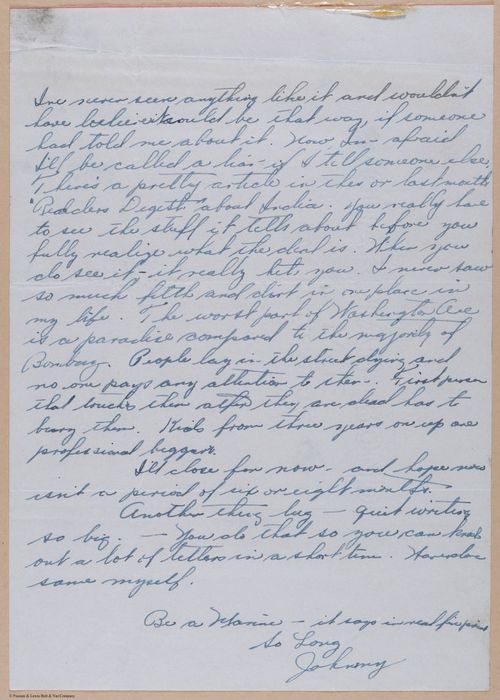 Ive never seen anything like it and wouldn't
have believed it could be that way if someone
had told me about it. Now Im afraid
I'll be called a liar if I tell someone else.
There's a pretty article in this or last months
"Readers Digest" about India. You really have
to see the stuff it tells about before you
fully realize what the deal is. When you
do see it - it really hits you. I never saw
so much filth and dirt in one place in
my life. The worst part of Washington Ave
is a paradise compared to the majority of
Bombay. People lay in the street dying and
no one pays any attention to them. First person
that touches them after they are dead has to
bury them. Kids from three years on up are
professional beggars.
I'll close for now - and hope now
isn't a period of six or eight months.
Another thing - quit writing
so big. - You do that so you can knock
out a lot of letters in a short time. Have done
same myself.
Be a Marine - it says in real fine print
So Long
Johnny
© Putnam & Lewis Bolt & Nut Company